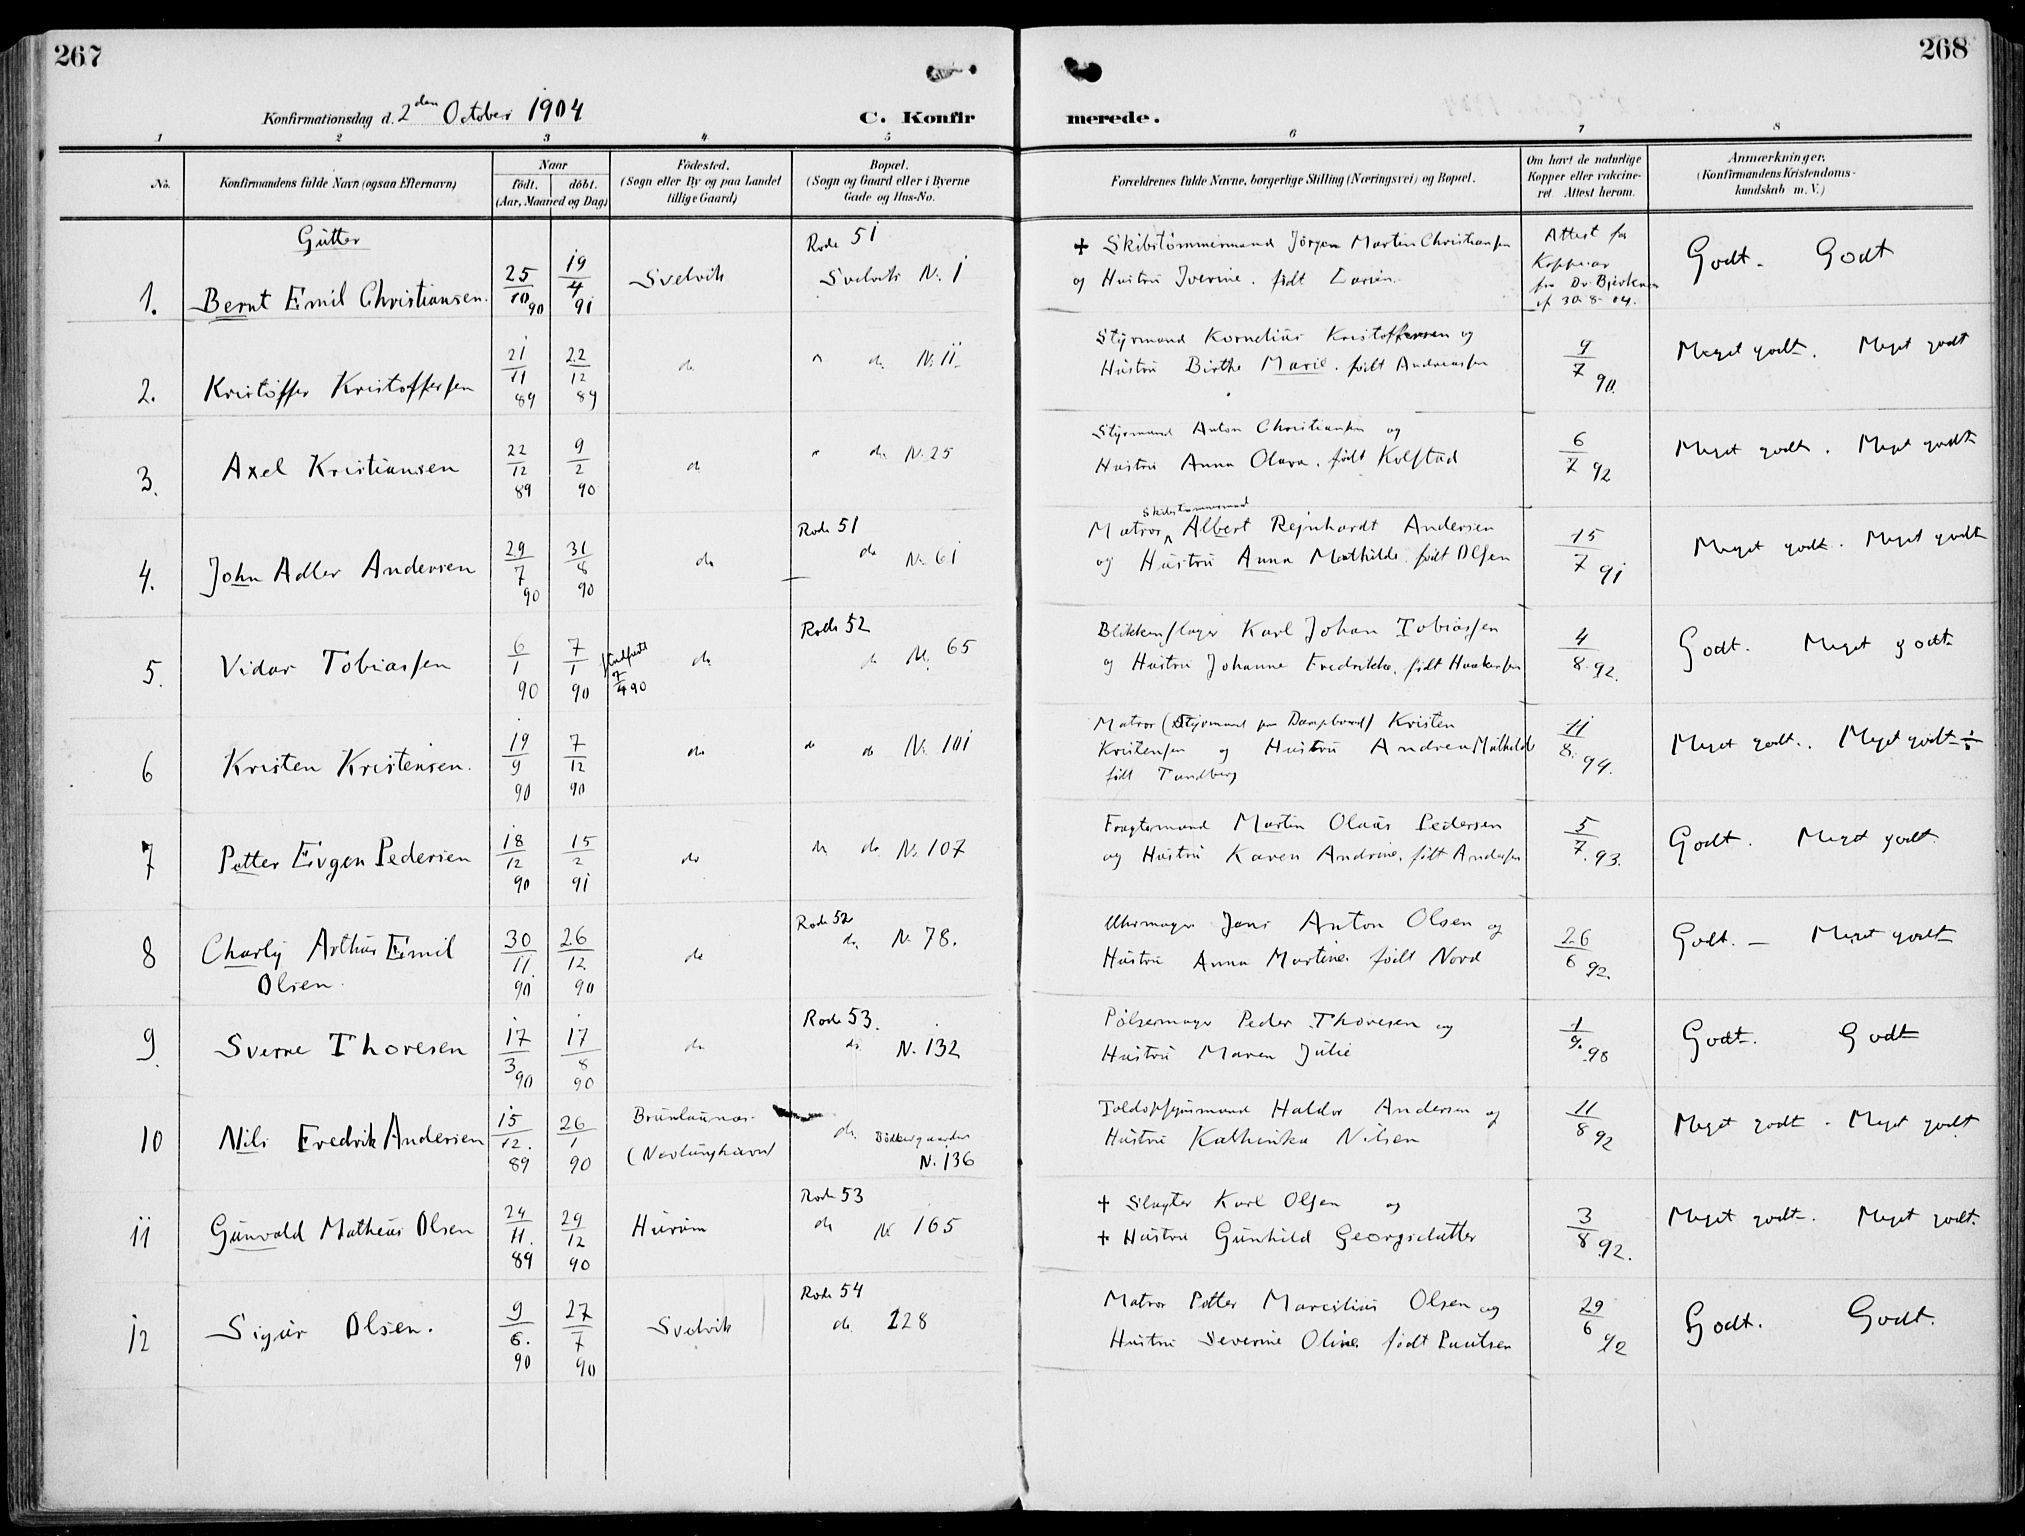 267
268
Konfirmationsdag d. 2den October 1904
C. Konfir
merede.
1 2 3 4 5 6 7 8
No.
Konfirmandens fulde Navn (ogsaa Efternavn)
Naar
født. døbt.
(Aar, Maaned og Dag)
Fødested.
(Sogn eller By og paa Landet
tillige Gaard)
Bopæl.
(Sogn og Gaard eller i Byerne
Gade og Hus-No.
Forældrenes fulde Navne, borgerlige Stilling (Næringsvei) og Bopæl.
Om havt de naturlige
Kopper eller vakcine-
ret Attest herom.
Anmærkninger.
(Konfirmandens Kristendoms-
kundskab m. V.)
Gutter
1. Bernt Emil Christiansen. 25/10 90 19/4 91 Svelvik
Rode 51
Svelvik N. 1
+ Skibstømmermand Jörgen Martin Christiansen
og Hustru Iverine. født
Attest for
Kopper
fra Dr.
af 30-8-04.
Godt. Godt
2. Kristoffer Kristoffersen 21/11 89 22/12 89 do " do N. 11
Styrmand Kornelius Kristoffersen og
Hustru Birthe Marie. født Andreassen
9/7 90. Meget godt. Meget godt
3. Axel Kristiansen 22/12 89 9/2 90 do " do N. 25
Styrmand Anton Christiansen og
Hustru Anna Olava. født Kolstad
6/7 92 Meget godt. Meget godt
4. John Adler Andersen 29/7 90 31/8 90 do
Rode 51
do N. 61
Skibstømmermand
Matros Albert Rejnhardt Andersen
og Hustru Anna Mathilde. født Olsen
15/7 91 Meget godt. Meget godt
5. Vidar Tobiassen 6/1 90 7/1 90
7/4 90 do
Rode 52
do N. 65
Blikkenslager Karl Johan Tobiassen
og Hustru Johanne Fredrikke. født Haakensen
4/8 92. Godt. Meget godt
6 Kristen Kristensen. 19/9 90 7/12 90 do do do N. 101
Matros (Styrmand paa Dampbaad) Kristen
Kristensen og Hustru Andrea Mathilde
født Tandberg
11/8 94. Meget godt. Meget godt
7 Petter Eivgen Pedersen 18/12 90 15/2 91 do do do N. 107
Fragtemand Martin Olaus Pedersen
og Hustru Karen Andrine. født Andersen
5/7 93. Godt. Meget godt.
8 Charly Arthur Emil
Olsen. 30/11 90 26/12 90 do
Rode 52
do N. 78.
Uhrmager Jens Anton Olsen og
Hustru Anna Martine født Nord
26/6 92. Godt. – Meget godt
9. Sverre Thoresen 17/3 90 17/8 90 do
Rode 53.
do N. 132
Pølsemager Peder Thoresen og
Hustru Maren Julie
98 Godt. Godt
10 Nils Fredrik Andersen 15/12 89 26/1 90
Brunlanæs
(Nevlunghavn)
do
N. 136
Toldopsynsmand Haldor Andersen og
Hustru Kathinka Nilsen
11/8 92 Meget godt. Meget godt
11 Gunvald Matheus Olsen 24/11 89 29/12 90 Hurum
Rode 53
do N 165
+ Slagter Karl Olsen og
+ Hustru Gunhild Georgsdatter
3/8 92. Meget godt. Meget godt.
12 Sigur Olsen. 9/6 90 27/7 90 Svelvik
Rode 54
do 228
Matros Petter Marcilius Olsen og
Hustru Severine Oline født Paulsen
29/6 92 Godt. Godt.